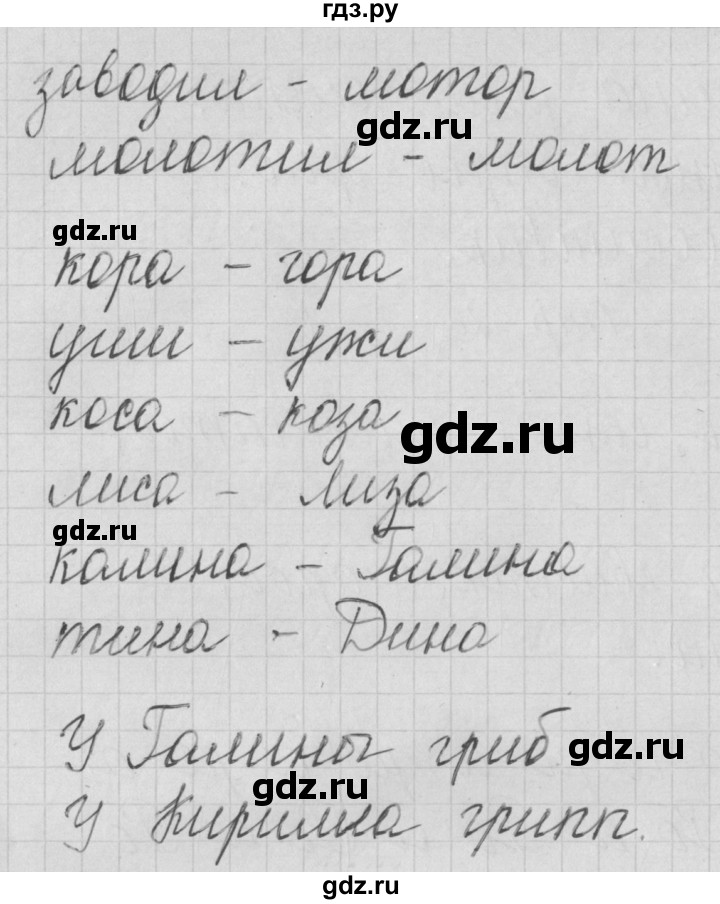 гдз.ру
заводил - мотор
gdz.ru
молотил - молот
gdz.ru
кора - гора
уши - ужи
коса - коза
gdz.ru
лиса - лиза
gdz.ru
калина - Галина
тина - Дина
У Галины гриб
gdz.ru
gdz.ru
У Кирилла грипп.
gdz.ru